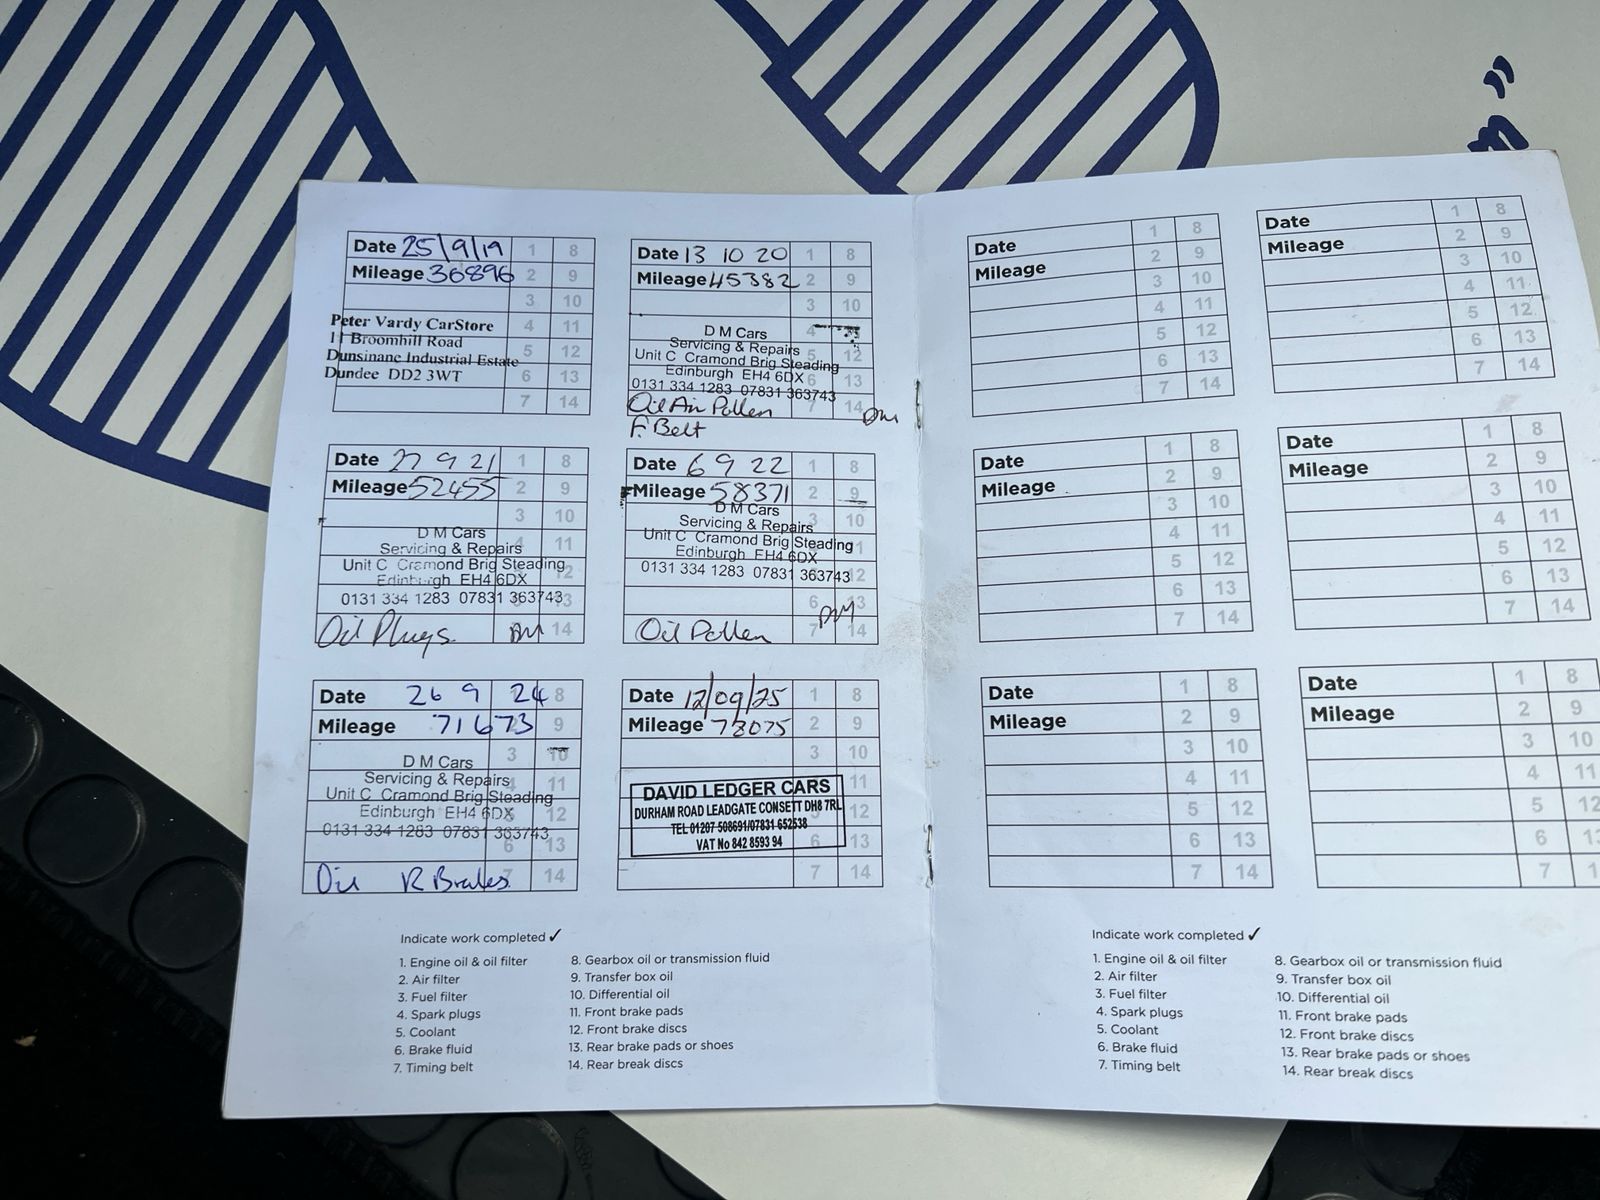 n"
Date 25/9/19 1 8
Mileage 36896 2 9
3 10
Peter Vardy CarStore 4 11
11 Broomhill Road
Dunsinane Industrial Estate 5 12
Dundee DD2 3WT 6 13
7 14
Date 13 10 20 1 8
Mileage 45382 2 9
3 10
D M Cars 4
Servicing & Repairs
Unit C Cramond Brig Steading 5 12
Edinburgh EH4 6DX 6 13
0131 334 1283 07831 363743
Oil Air Pollen 7 14 DM
F. Belt
Date 27 9 21 1 8
Mileage 52455 2 9
3 10
D M Cars 4 11
Servicing & Repairs
Unit C Cramond Brig Steading 12
Edinburgh EH4 6DX
0131 334 1283 07831 363743 13
Oil Plugs DM 14
Date 6 9 22 1 8
Mileage 58371 2 9
D M Cars
Servicing & Repairs 3 10
Unit C Cramond Brig Steading 11
Edinburgh EH4 6DX
0131 334 1283 07831 363743 12
6 DM 13
Oil Pollen 7 14
Date 26 9 24 8
Mileage 71673 9
3 10
D M Cars
Servicing & Repairs 4 11
Unit C Cramond Brig Steading
Edinburgh EH4 6DX 5 12
0131 334 1283 07831 363743
6 13
Oil R Brakes 7 14
Date 12/09/25 1 8
Mileage 78075 2 9
3 10
DAVID LEDGER CARS 11
DURHAM ROAD LEADGATE CONSETT DH8 7RL 12
TEL 01207 508691/07831 652538
VAT No 842 8593 94 6 13
7 14
Indicate work completed ✓
1. Engine oil & oil filter
2. Air filter
3. Fuel filter
4. Spark plugs
5. Coolant
6. Brake fluid
7. Timing belt
8. Gearbox oil or transmission fluid
9. Transfer box oil
10. Differential oil
11. Front brake pads
12. Front brake discs
13. Rear brake pads or shoes
14. Rear break discs
Date 1 8
Mileage 2 9
3 10
4 11
5 12
6 13
7 14
Date 1 8
Mileage 2 9
3 10
4 11
5 12
6 13
7 14
Date 1 8
Mileage 2 9
3 10
4 11
5 12
6 13
7 14
Date 1 8
Mileage 2 9
3 10
4 11
5 12
6 13
7 14
Date 1 8
Mileage 2 9
3 10
4 11
5 12
6 13
7 14
Date 1 8
Mileage 2 9
3 10
4 11
5 12
6
7
Indicate work completed ✓
1. Engine oil & oil filter
2. Air filter
3. Fuel filter
4. Spark plugs
5. Coolant
6. Brake fluid
7. Timing belt
8. Gearbox oil or transmission fluid
9. Transfer box oil
10. Differential oil
11. Front brake pads
12. Front brake discs
13. Rear brake pads or shoes
14. Rear break discs